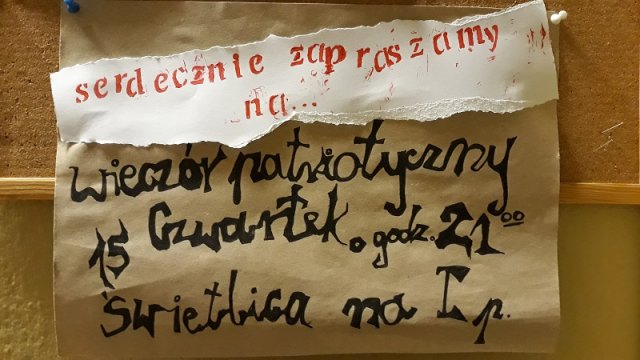 serdecznie zapraszamy
na...
wieczór patriotyczny
15 Czwartek. godz. 21⁰⁰
świetlica na I p.